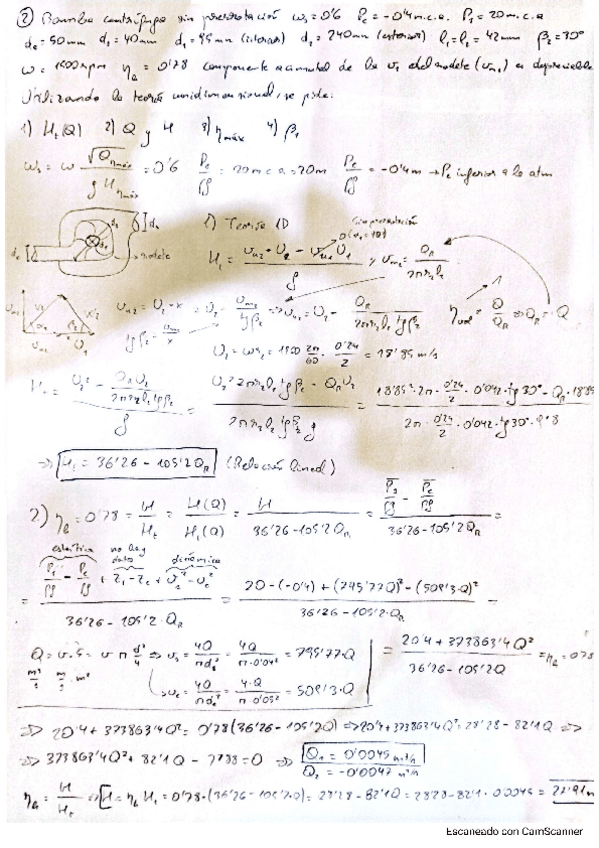 ② Bomba centrífuga sin prerrotación ωs = 0'6 Pe = -0'4 m.c.a. Ps = 20 m.c.a
de = 50mm ds = 40mm d1 = 95mm (interior) d2 = 240mm (exterior) l1 = l2 = 42mm β2 = 30°
ω = 1500rpm ηh = 0'78 componente acimutal de la v1 del rodete (vu1) es despreciable
Utilizando la teoría unidimensional, se pide:
1) Ht(Q) 2) Q y H 3) ηmáx 4) β1
ωs = ω √Qηmáx / g Hηmáx = 0'6 Ps/ρg = 20 m.c.a = 20m Pe/ρg = -0'4m → Pe inferior a la atm
1) Teoría 1D
sin prerrotación
0 (α1 = 90°)
de ds rodete
Ht = (vu2·U2 - vu1U1)/g y vm2 = QR/2πr2l2
vu2 = U2 - x = U2 - vm2/tgβ2 ⇒ vu2 = U2 - QR/2πr2l2tgβ2 ηvol = Q/QR ⇒ QR = Q
tgβ2 = vm2/x
U2 = ωr2 = 1500 2π/60 · 0'24/2 = 18'85 m/s
Ht = (U2² - QRU2/2πr2l2tgβ2)/g = (U2²2πr2l2tgβ2 - QRU2)/2πr2l2tgβ2g = (18'85²·2π·0'24/2·0'042·tg30° - QR·18'85)/2π·0'24/2·0'042·tg30°·9'8
⇒ Ht = 36'26 - 105'2QR (Relación lineal)
2) ηh = 0'78 = H/Ht = H(Q)/Ht(Q) = H/(36'26 - 105'2QR) = (Ps/ρg - Pe/ρg)/(36'26 - 105'2QR) =
estática no hay datos dinámica
= (Ps/ρg - Pe/ρg + zs - ze + vs² - ve²)/(36'26 - 105'2·QR) = (20 - (-0'4) + (795'77Q)² - (509'3·Q)²)/(36'26 - 105'2·QR) =
Q = v·S = v π d²/4 ⇒ vs = 4Q/πds² = 4Q/π·0'04² = 795'77·Q = (20'4 + 373863'4Q²)/(36'26 - 105'2Q) = ηh = 0'78
m³/s m/s · m² ↳ ve = 4Q/πde² = 4·Q/π·0'05² = 509'3·Q
⇒ 20'4 + 373863'4Q² = 0'78(36'26 - 105'2Q) ⇒ 20'4 + 373863'4Q² = 28'28 - 82'1Q ⇒
⇒ 373863'4Q² + 82'1Q - 7'88 = 0 ⇒ Q1 = 0'0045 m³/s
Q2 = -0'0047 m³/s
ηh = H/Ht ⇒ H = ηh Ht = 0'78·(36'26 - 105'2·Q) = 28'28 - 82'1Q = 28'28 - 82'1·0'0045 = 27'91m
Escaneado con CamScanner